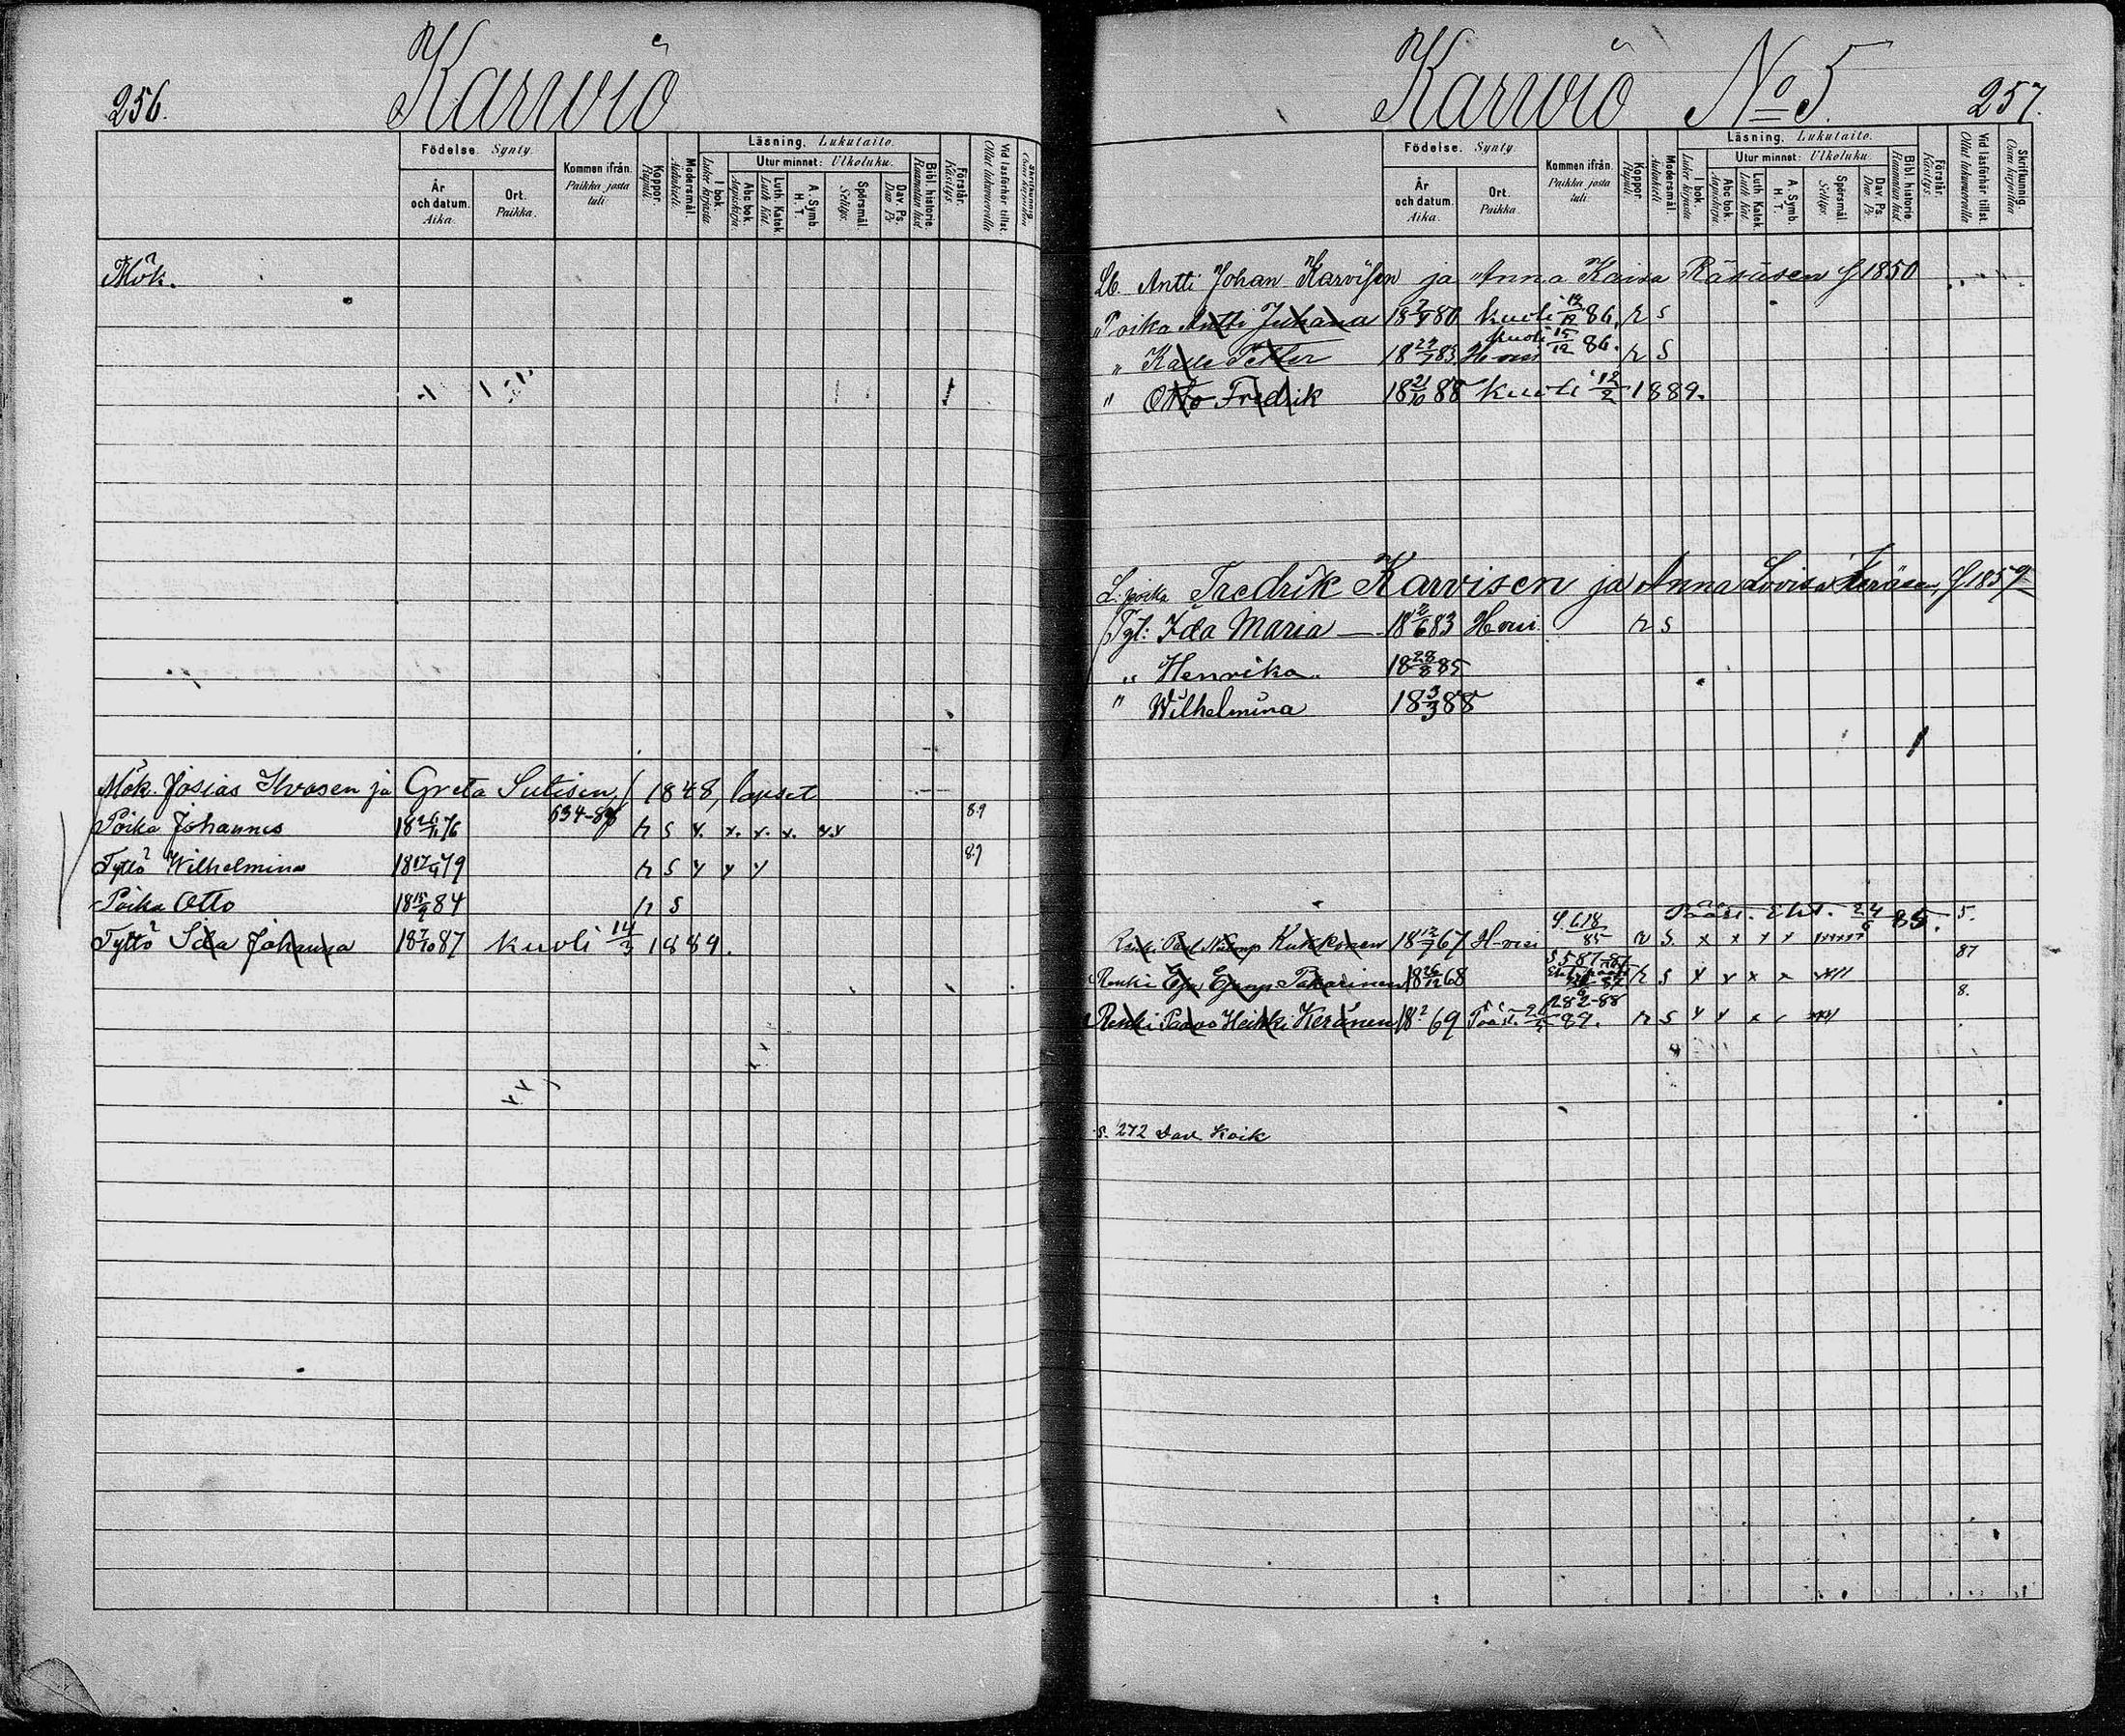 256.
Karviö
Födelse. Synty.
År och datum. Aika.
Ort. Paikka.
Kommen ifrån. Paikka josta tuli
Koppor. Rupuli.
Modersmål. Äidinkieli.
Läsning. Lukutaito.
I bok. Lukee kirjasta
Utur minnet: Ulkoluku.
Abc bok. Aapiskirja.
Luth. Katek. Luth Kat.
A. Symb. H. T.
Spörsmål. Selitys.
Dav. Ps. Dav Ps
Bibl. historie. Raamatun hist.
Förstår. Käsitys.
Vid läsförhör tillst. Ollut lukuvuorolla
Mök.
Mök. Josias Ihvosen ja Greta Sutisen, f 1848, lapset
Poika Johannes 18 26/11 76 634-88 r s x. x. x. x. xx 89
Tyttö Wilhelmina 18 17/4 79 r s x x x 89
Poika Otto 18 15/9 84 r s
Tyttö Ida Johanna 18 7/10 87 kuoli 14/3 1889.
Karviö No 5. 257.
Födelse. Synty.
År och datum. Aika.
Ort. Paikka.
Kommen ifrån. Paikka josta tuli
Koppor. Rupuli.
Modersmål. Äidinkieli.
Läsning. Lukutaito.
I bok. Lukee kirjasta
Utur minnet: Ulkoluku.
Abc bok. Aapiskirja.
Luth. Katek. Luth Kat.
A. Symb. H. T.
Spörsmål. Selitys.
Dav. Ps. Dav Ps
Bibl. historie. Raamatun hist.
Förstår. Käsitys.
Vid läsförhör tillst. Ollut lukuvuorolla
Skrifkunnig. Osaa kirjoittaa
Lb. Antti Johan Karvisen ja Anna Kaisa Räsäsen f 1850
Poika Antti Juhana 18 80 kuoli 86. r s
" Kalle Petter 83 H-vesi kuoli 15/12 86. r s
" Otto Fredrik 18 21/10 88 kuoli 12/2 1889.
L. poika Fredrik Karvisen ja Anna Lovisa Keräsen, f 1857
Tyt: Ida Maria 18 2/6 83 H-vesi r s
" Henrika 18 28/8 85
" Wilhelmina 18 3/3 88
Pääst. Eht. 24/6 85. 5.
Renki Kukkonen 18 12/7 67 H-vesi S. 618/85 r s. x x x x xxxxx 87
Renki Pakarinen 18 26/12 68 S 587-87 r s x x x x xxx 8.
Renki Paavo Heikki Keränen 18 69 Pääst. 89. 282-88 r s x x x x xxx
s. 272 Dav. Koik